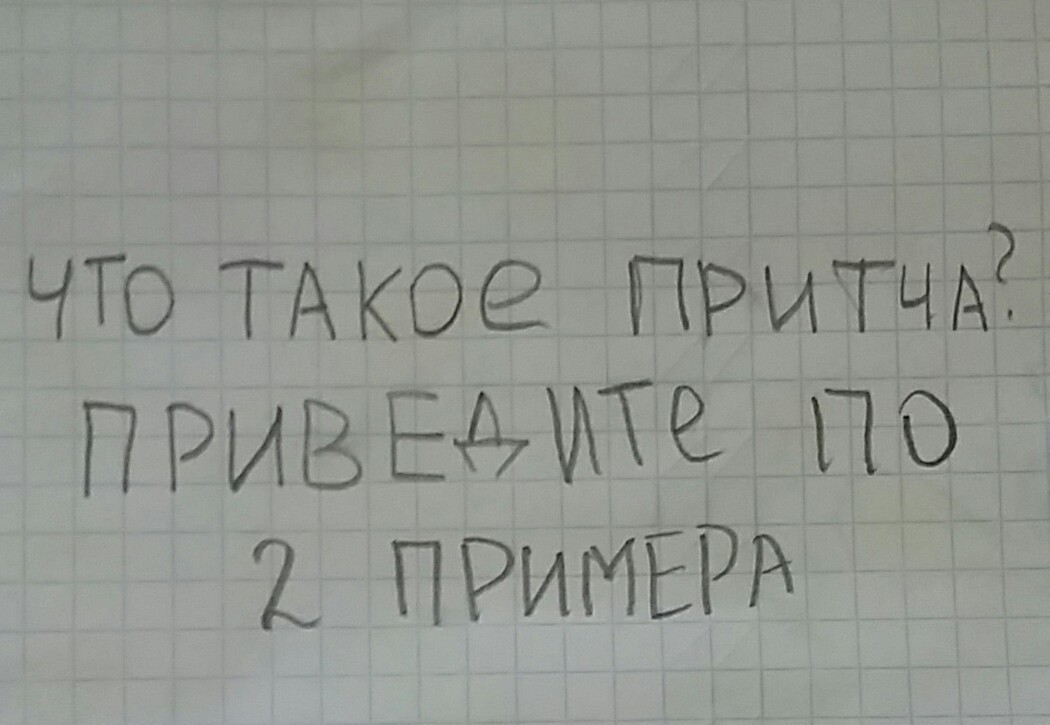 ЧТО ТАКОЕ ПРИТЧА?
ПРИВЕДИТЕ ПО
2 ПРИМЕРА